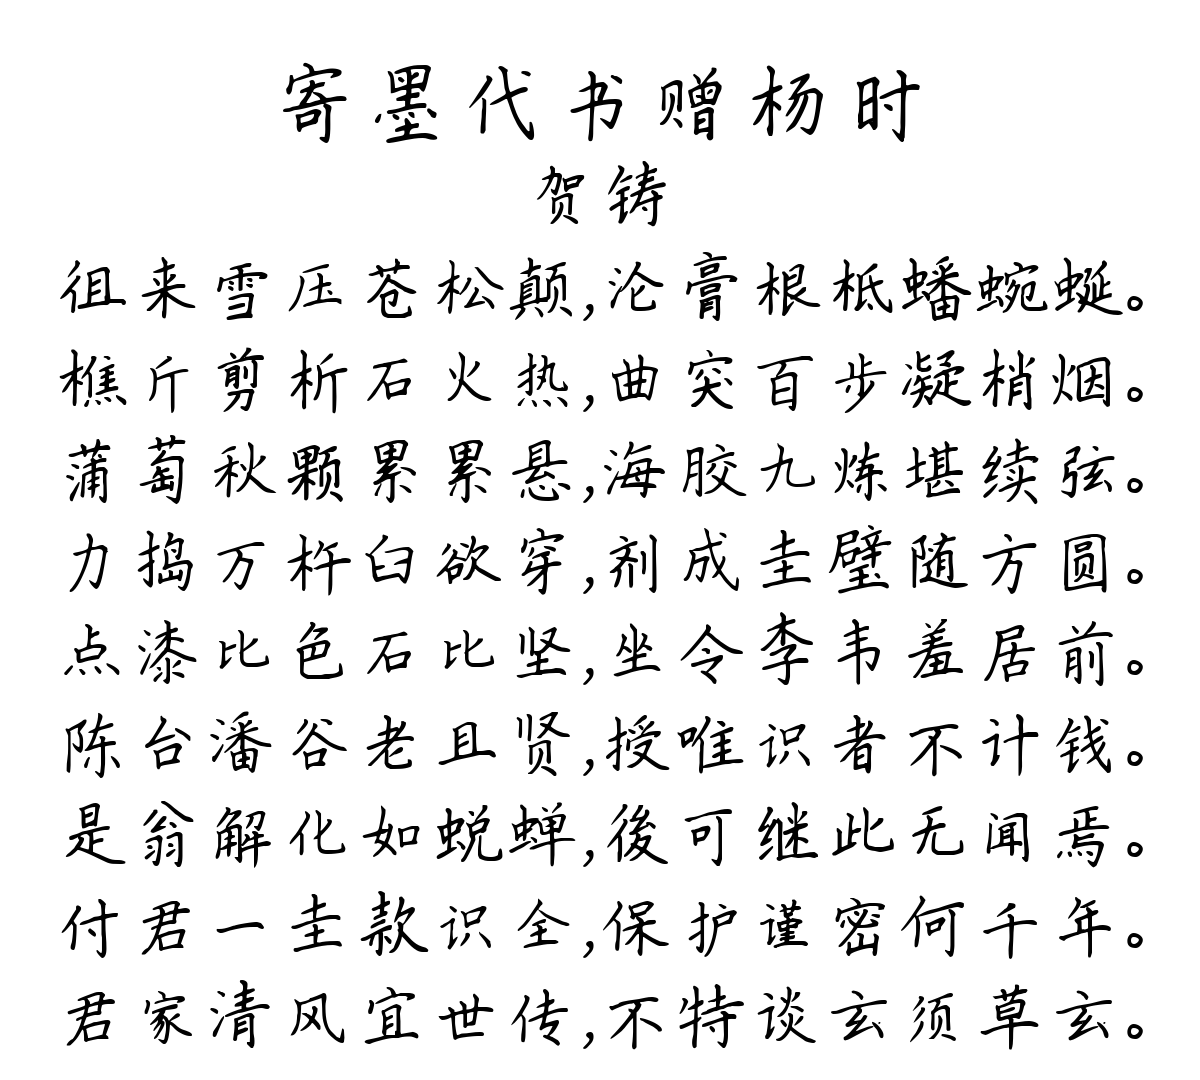 寄墨代书赠杨时
贺铸
徂来雪压苍松颠,沦膏根柢蟠蜿蜒。
樵斤剪析石火热,曲突百步凝梢烟。
蒲萄秋颗累累悬,海胶九炼堪续弦。
力捣万杵臼欲穿,剂成圭璧随方圆。
点漆比色石比坚,坐令李韦羞居前。
陈台潘谷老且贤,授唯识者不计钱。
是翁解化如蜕蝉,後可继此无闻焉。
付君一圭款识全,保护谨密何千年。
君家清风宜世传,不特谈玄须草玄。